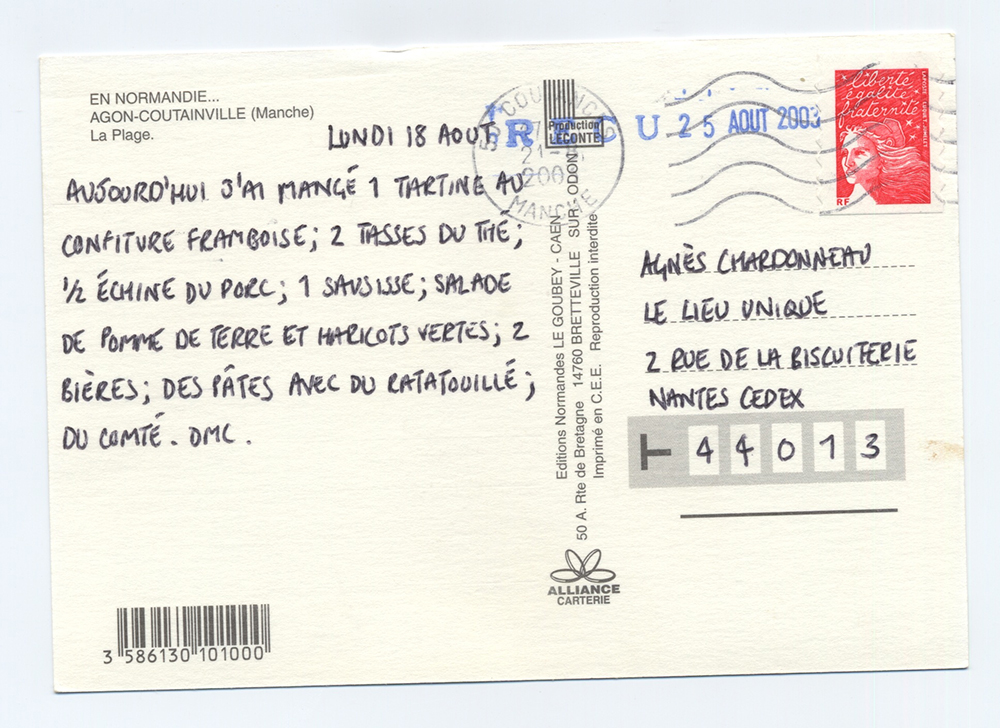 EN NORMANDIE...
AGON-COUTAINVILLE (Manche)
La Plage.
LUNDI 18 AOUT
AUJOURD'HUI J'AI MANGÉ 1 TARTINE AU
CONFITURE FRAMBOISE; 2 TASSES DU THÉ;
1/2 ÉCHINE DU PORC; 1 SAUSISSE; SALADE
DE POMME DE TERRE ET HARICOTS VERTES; 2
BIÈRES; DES PÂTES AVEC DU RATATOUILLÉ;
DU COMTÉ. DMC.
3 586130 101000
Production
LECONTE
Editions Normandes LE GOUBEY - CAEN
50 A. Rte de Bretagne 14760 BRETTEVILLE SUR ODON
Imprimé en C.E.E. Reproduction interdite
ALLIANCE
CARTERIE
50 COUTANCES
MANCHE
REÇU 25 AOUT 2003
liberté
égalité
fraternité
RF
LA POSTE
AGNÈS CHARDONNEAU
LE LIEU UNIQUE
2 RUE DE LA BISCUITERIE
NANTES CEDEX
44013